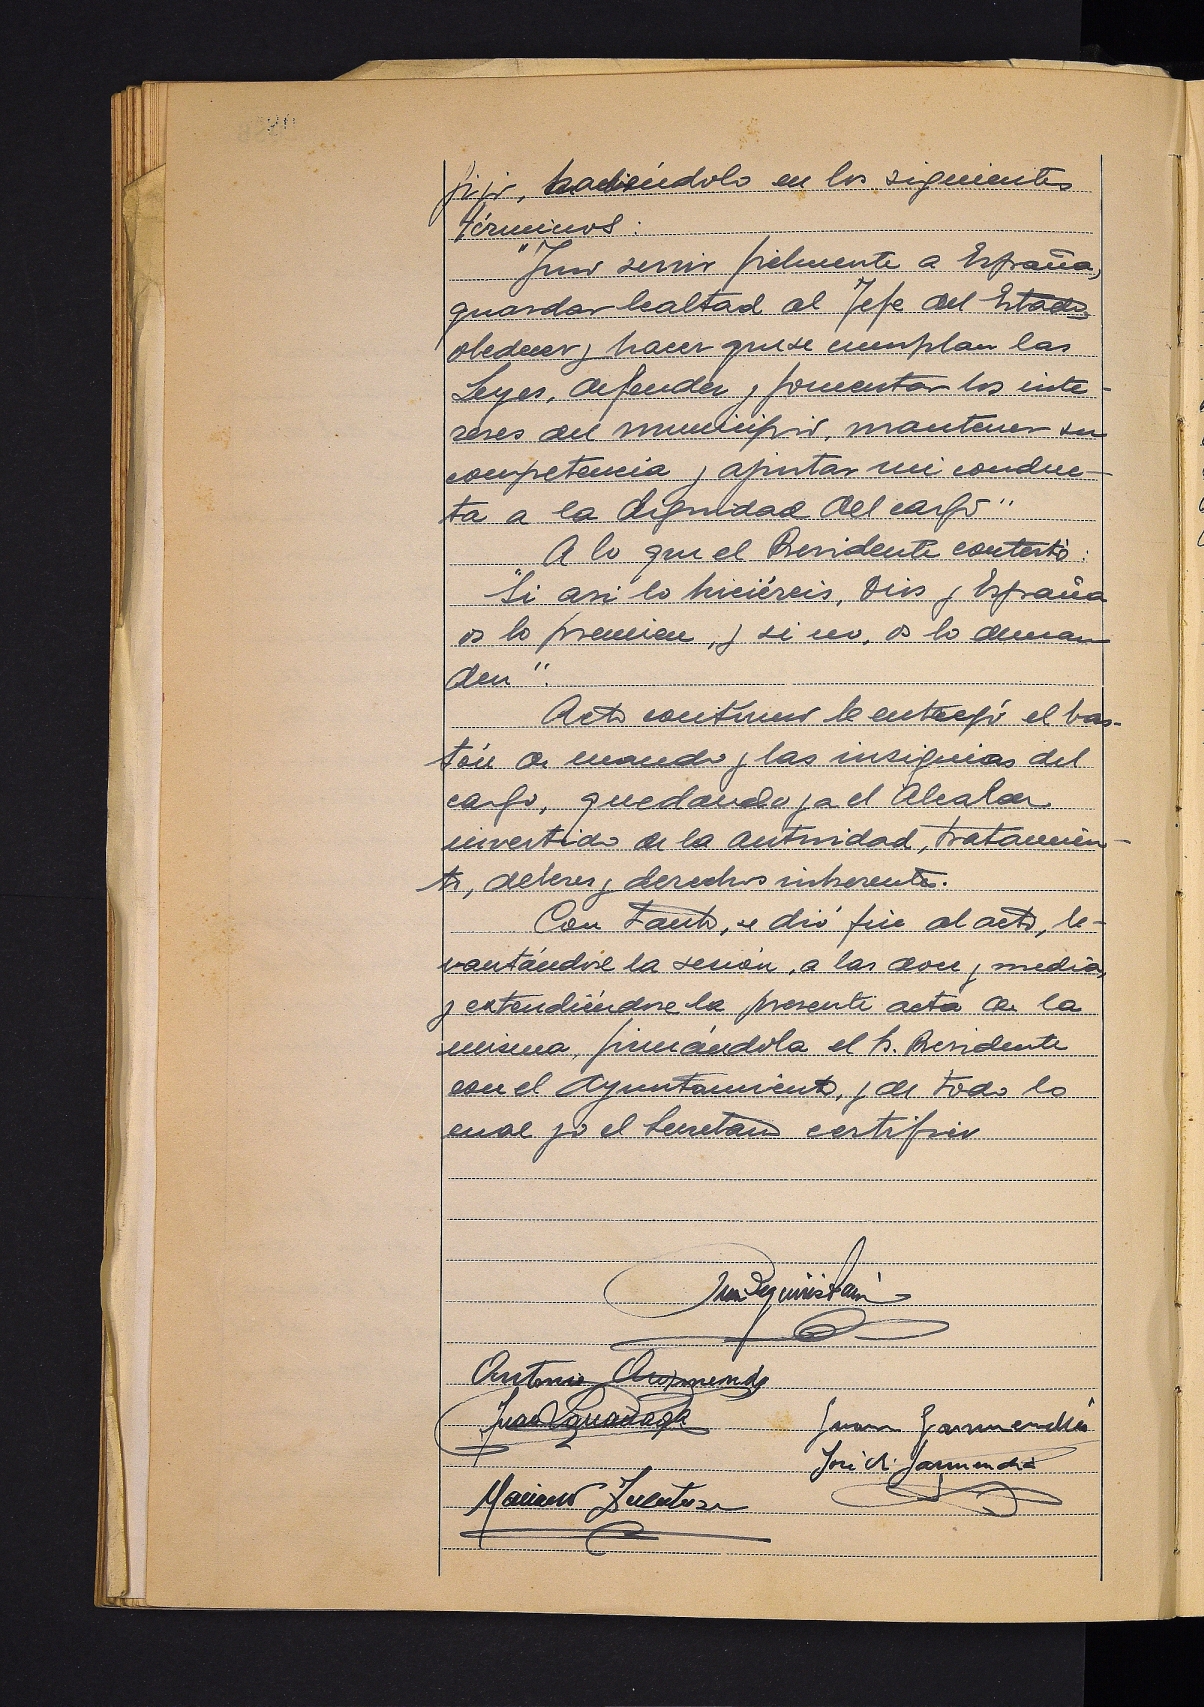 fijo, haciéndolo en los siguientes
términos:
"Juro servir fielmente a España,
guardar lealtad al Jefe del Estado
obedecer y hacer que se cumplan las
Leyes, defender y fomentar los inte-
reses del municipio, mantener su
competencia y ajustar mi conduc-
ta a la dignidad del cargo"
A lo que el Presidente contestó:
"Si asi lo hiciéreis, Dios y España
os lo premien, y si no, os lo deman
den".
Acto continuo le entregó el bas-
tón de mando y las insignias del
cargo, quedando ya el Alcalde
investido de la autoridad, tratamien-
to, deberes y derechos inherentes.
Con tanto, se dió fin al acto, le-
vantándose la sesión, a las doce y media,
y extendiéndose la presente acta de la
misma, firmándola el S. Presidente
con el Ayuntamiento, y de todo lo
cual yo el Secretario certifico
Antonio
Juan
Juan Garmendia
José Garmendia
Mariano